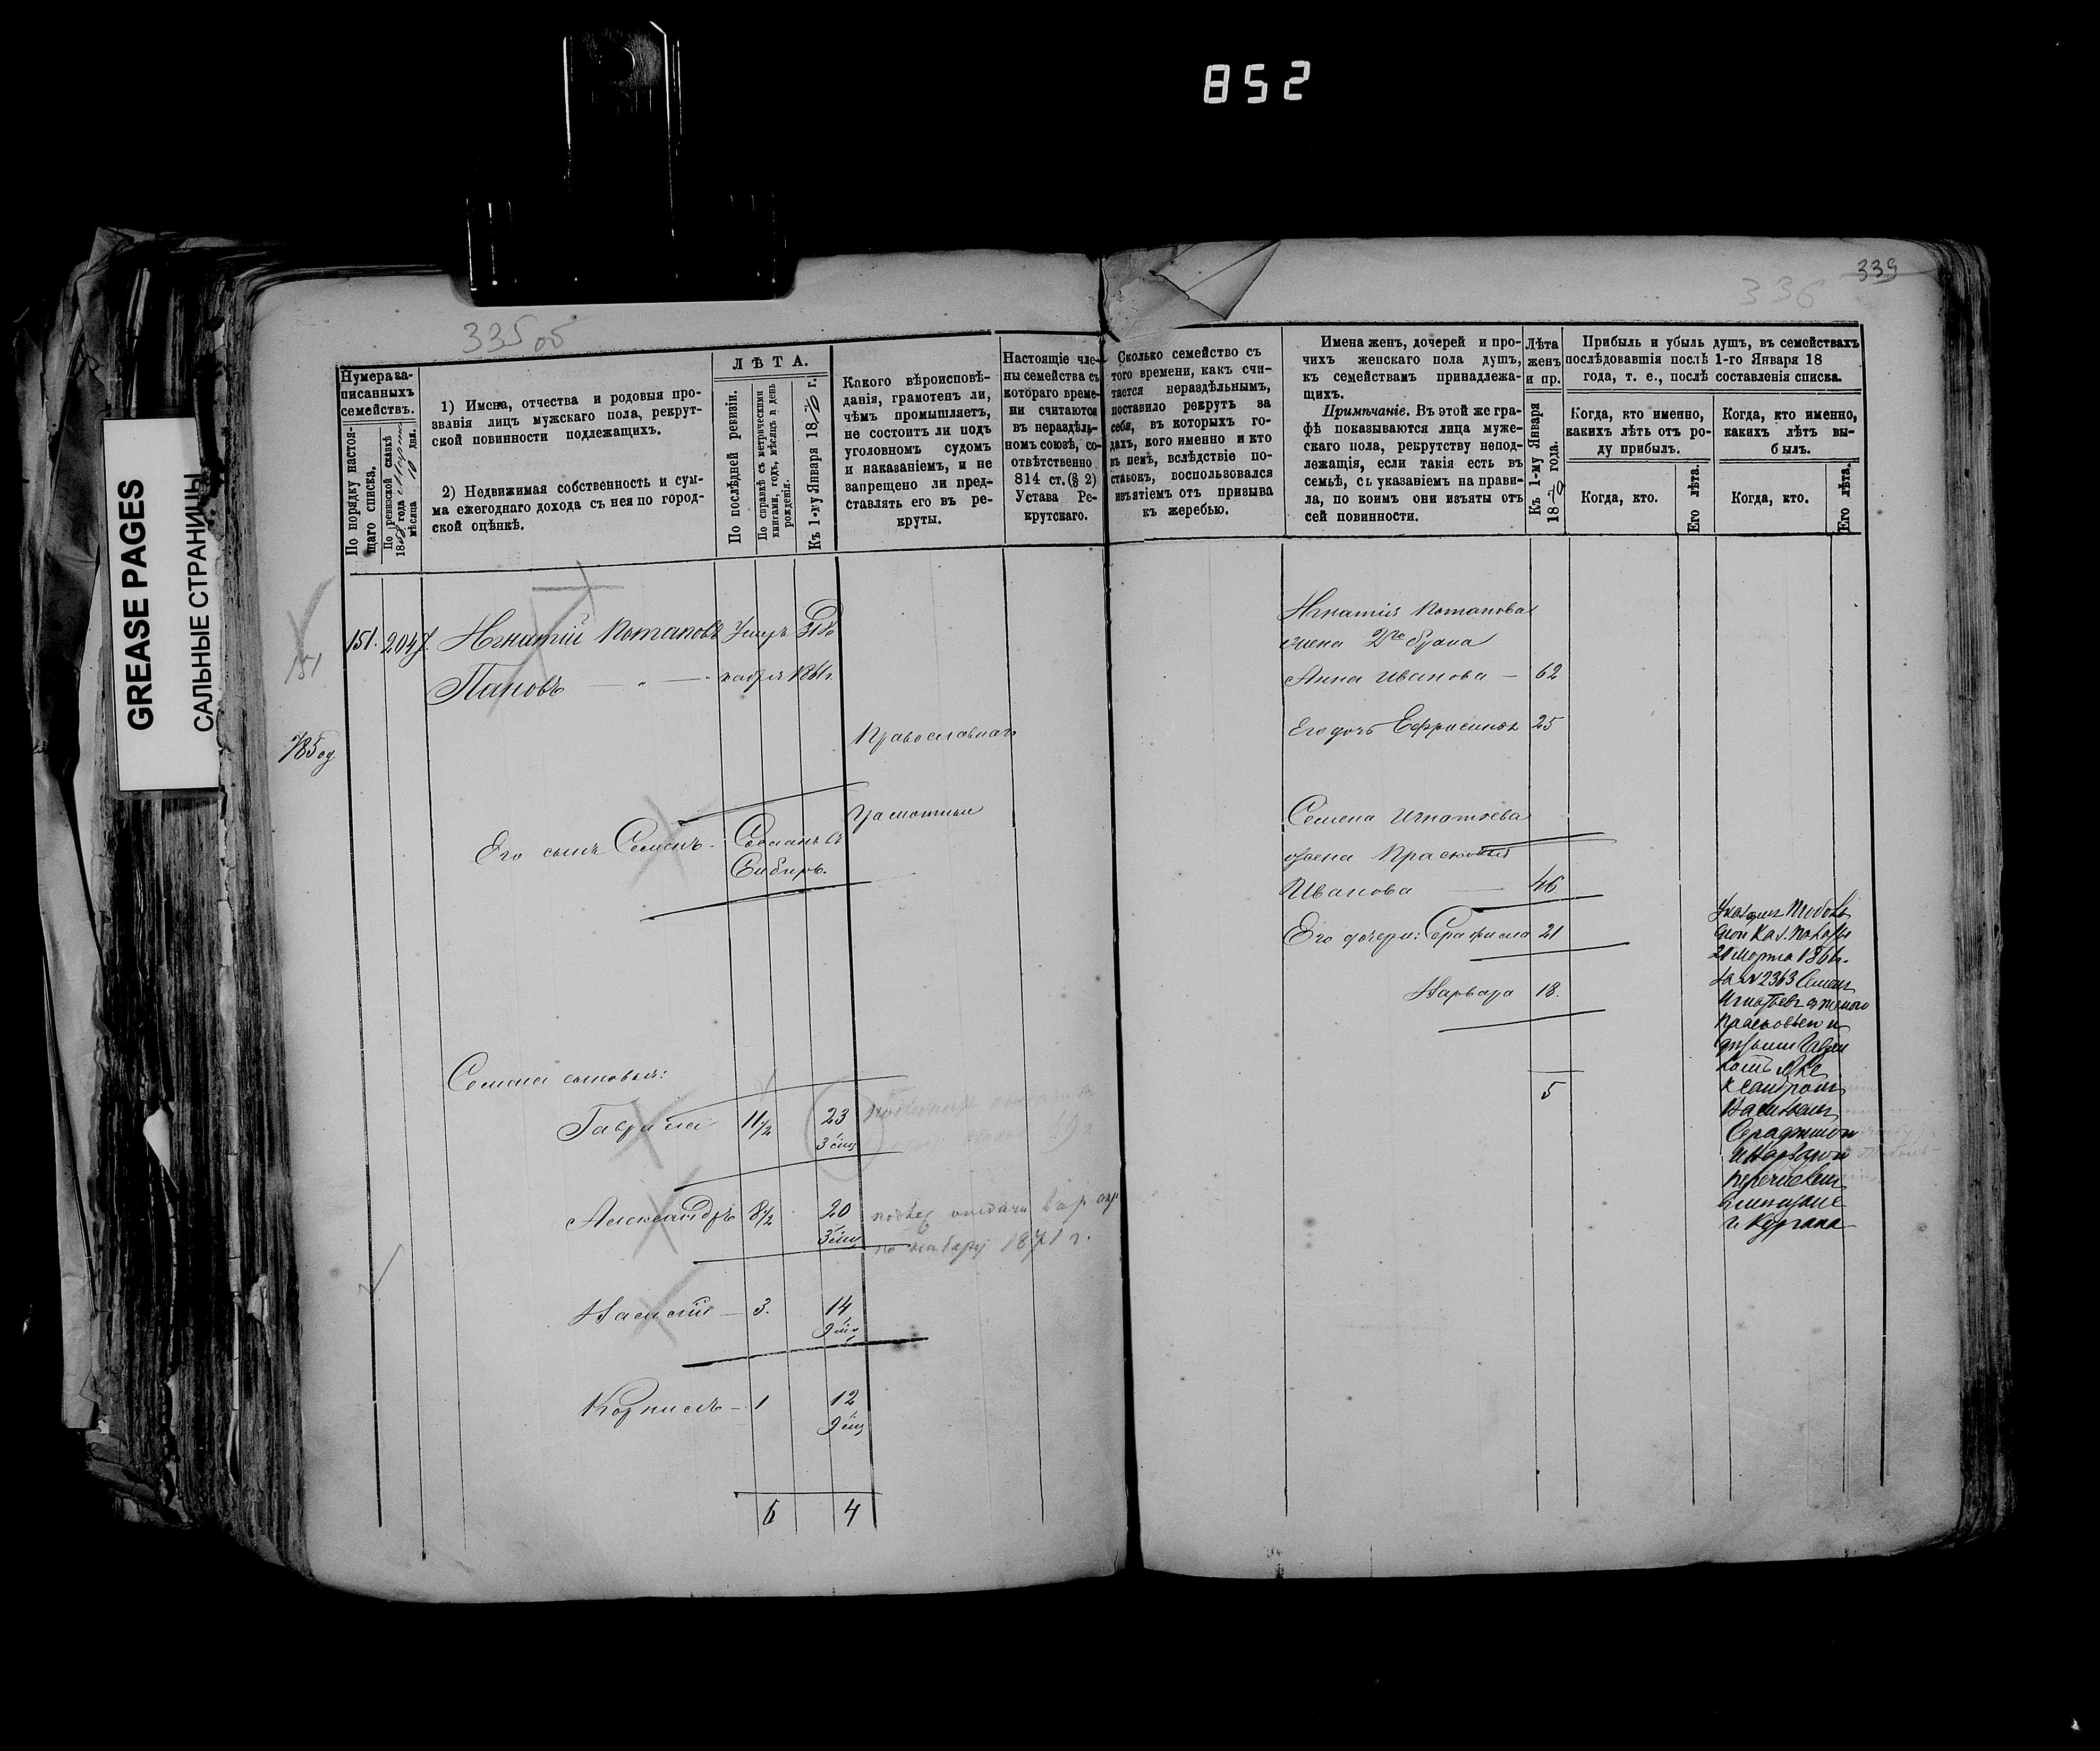 852
GREASE PAGES
САЛЬНЫЕ СТРАНИЦЫ
335 об
Нумера за-
писанныхъ
семействъ.
По порядку настоя-
щаго списка.
По ревизской сказкѣ
18 года
мѣсяца дня.
1) Имена, отчества и родовыя про-
званія лицъ мужскаго пола, рекрут-
ской повинности подлежащихъ.
2) Недвижимая собственность и сум-
ма ежегоднаго дохода съ нея по город-
ской оцѣнкѣ.
ЛѢТА.
По послѣдней ревизіи.
По справкѣ съ метрическими
книгами, годъ, мѣсяцъ и день
рожденія.
Къ 1-му Января 1870 г.
Какого вѣроисповѣ-
данія, грамотенъ ли,
чѣмъ промышляетъ,
не состоитъ ли подъ
уголовномъ судомъ
и наказаніемъ, и не
запрещено ли пред-
ставлять его въ ре-
круты.
Настоящіе чле-
ны семейства съ
котораго време-
ни считаются
въ нераздѣль-
номъ союзѣ, со-
отвѣтственно
814 ст. (§ 2)
Устава Ре-
крутскаго.
151
151. 2047. Игнатій Потаповъ Умеръ 31 Де
Пановъ — „ — кабря 1861 г.
785 од
Православнаго
Грамотный
Его сынъ Семенъ - Сосланъ въ
Сибирь.
Семена сыновья:
Гаврила 11½ 23
3 мц
Александръ 8½ 20
3 мц
подлеж отдачи въ
по набору 1871 г.
Василій — 3. 14
9 мц
Корнилъ — 1 12
9 мц
6 4
336
339
Сколько семейство съ
того времени, какъ счи-
тается нераздѣльнымъ,
поставило рекрутъ за
себя, въ которыхъ го-
дахъ, кого именно и кто
въ немъ, вслѣдствіе по-
ставокъ, воспользовался
изъятіемъ отъ призыва
къ жеребью.
Имена женъ, дочерей и про-
чихъ женскаго пола душъ,
къ семействамъ принадлежа-
щихъ.
Примѣчаніе. Въ этой же гра-
фѣ показываются лица муже-
скаго пола, рекрутству непод-
лежащія, если такія есть въ
семьѣ, съ указаніемъ на прави-
ла, по коимъ они изъяты отъ
сей повинности.
Лѣта
женъ
и пр.
Къ 1-му Января
1870 года.
Прибыль и убыль душъ, въ семействахъ
послѣдовавшія послѣ 1-го Января 18
года, т. е., послѣ составленія списка.
Когда, кто именно,
какихъ лѣтъ отъ ро-
ду прибылъ.
Когда, кто.
Его лѣта.
Когда, кто именно,
какихъ лѣтъ вы-
былъ.
Когда, кто.
Его лѣта.
Игнатія Потапова
жена 2го брака
Анна Иванова — 62
Его дочь Ефросинья 25
Семена Игнатьева
жена Прасковья
Иванова — 46
Его дочери: Серафима 21
Варвара 18.
5
Указомъ Тоболь
ской Каз. Палаты
20 Марта 1861 г.
за № 2363 Семенъ
Игнатьевъ съ женою
Прасковьею и
дѣтьми Гаври
ломъ Але
ксандромъ
Васильемъ
Серафимой
и Варварой
перечислены
въ мещане
г. Кургана